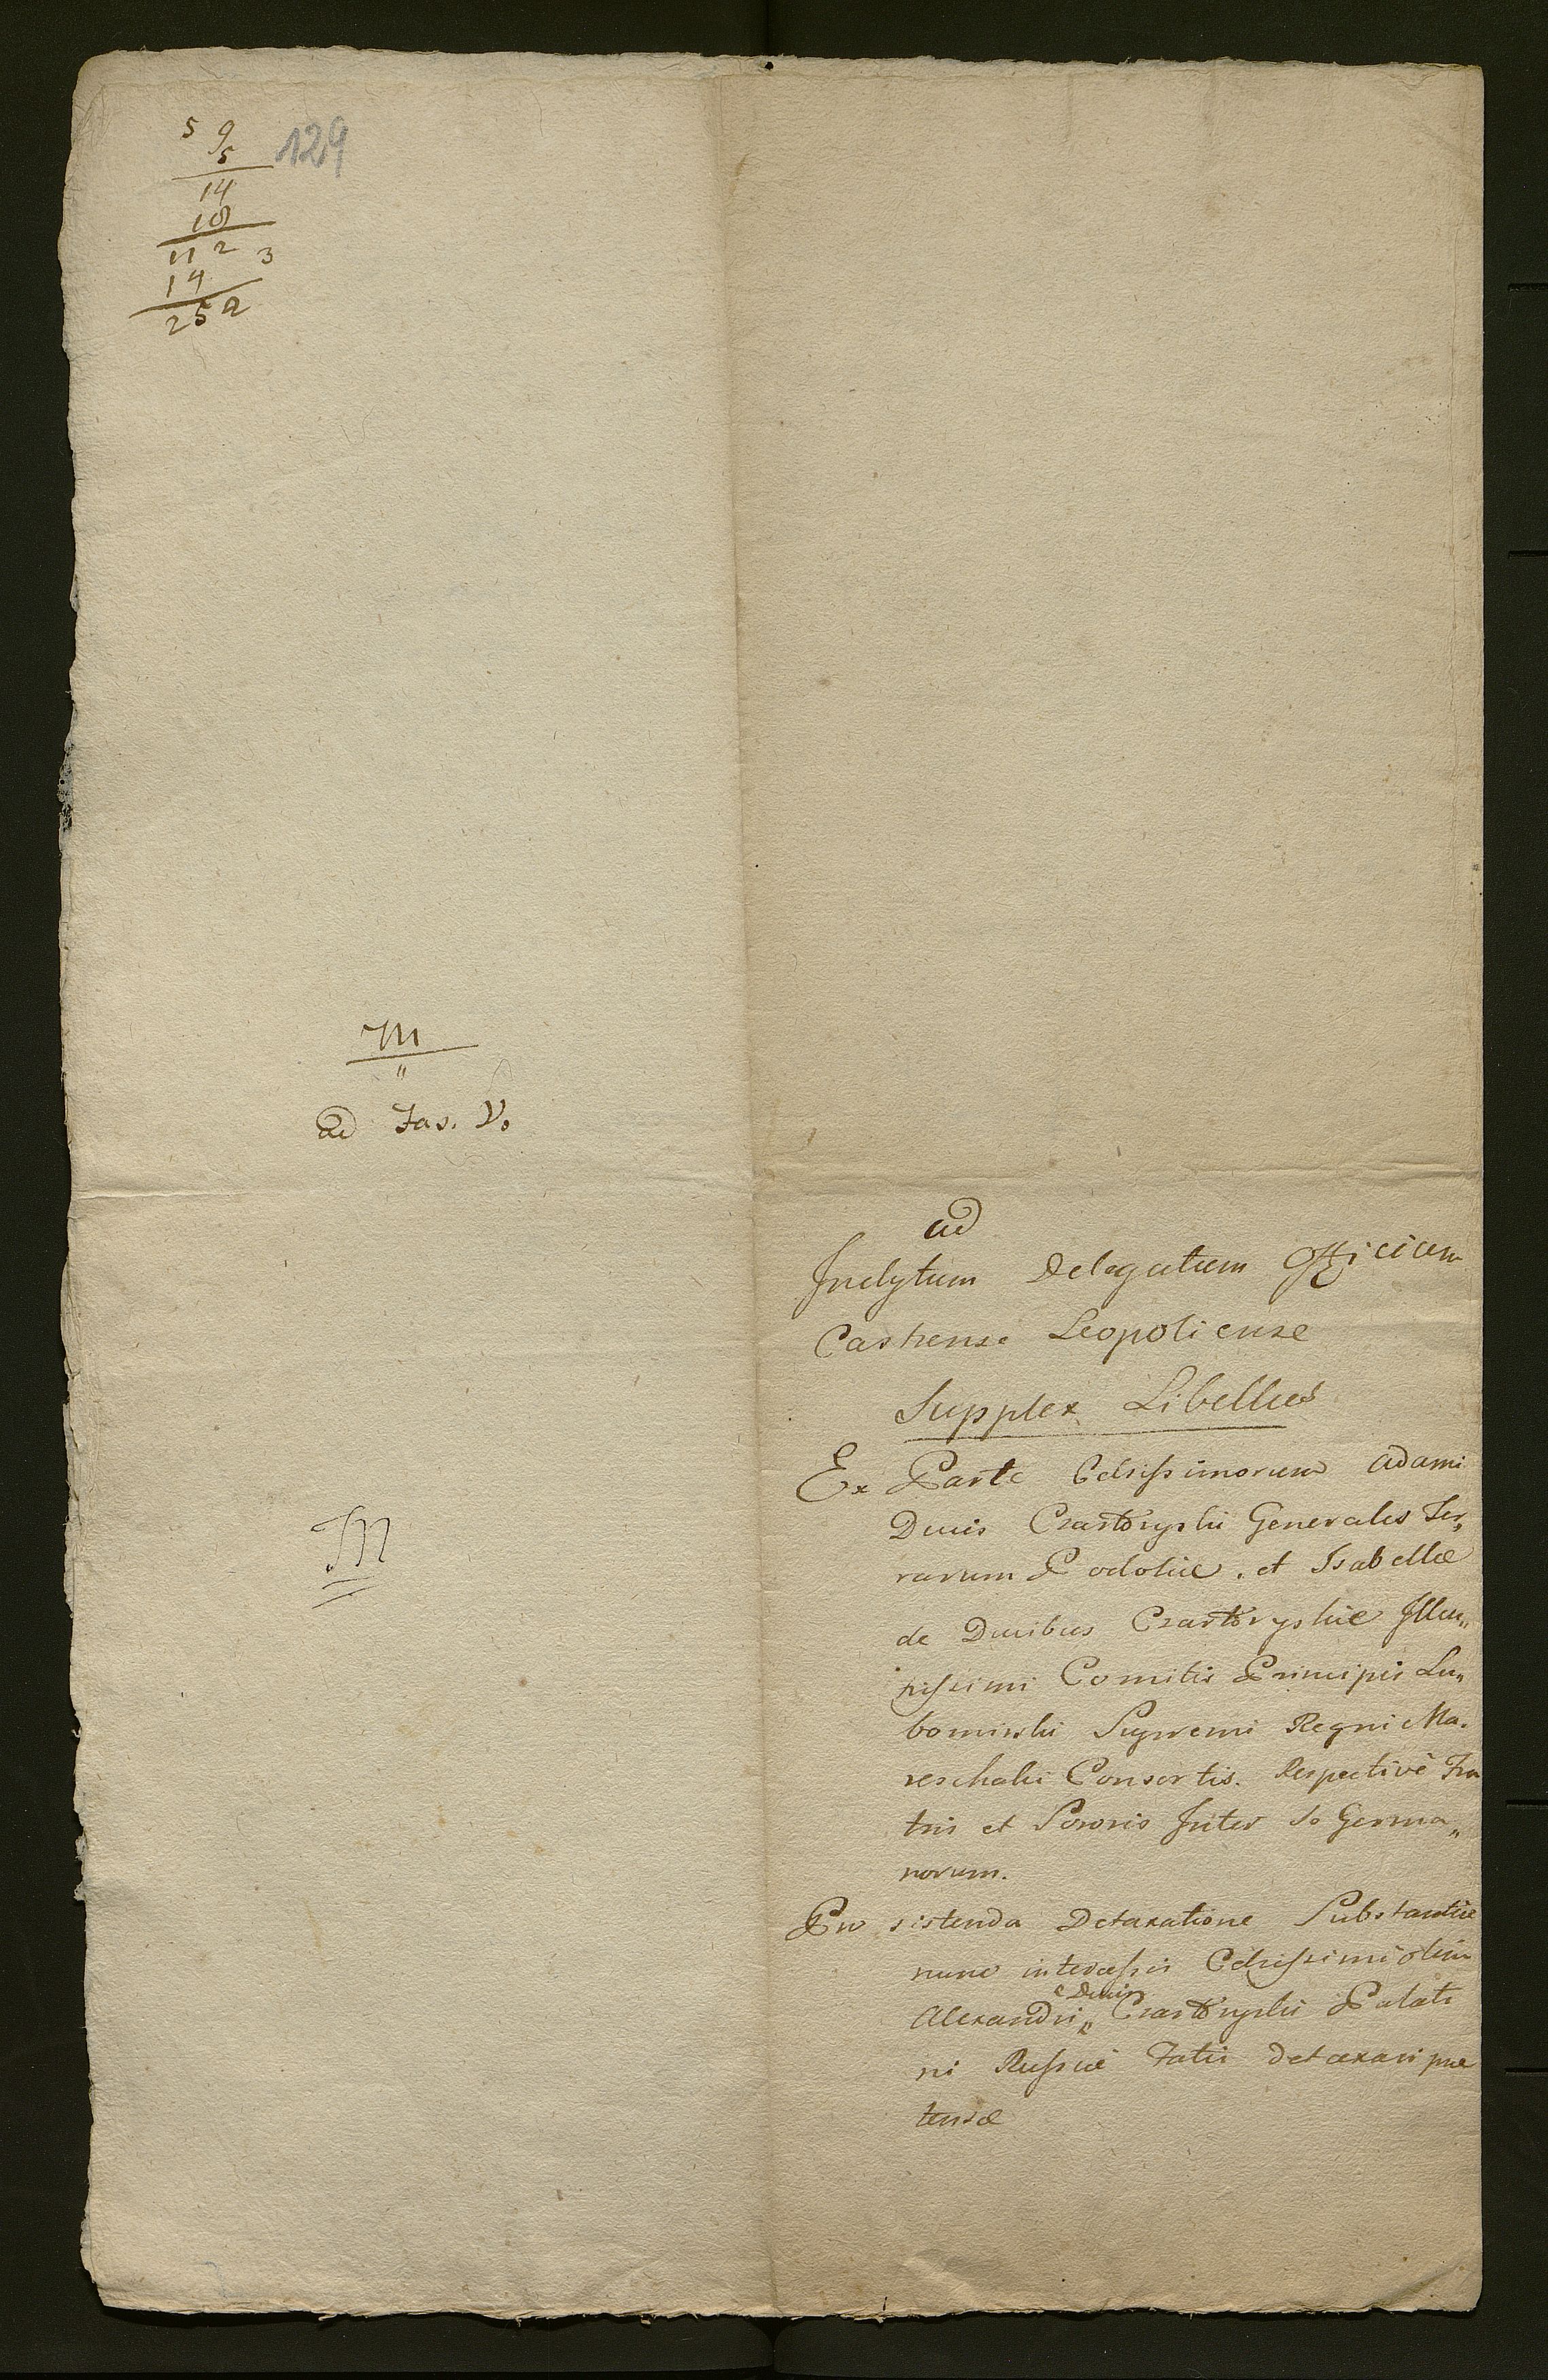 5 9
5
129
14
18
112 3
14
252
M
"
ad Fas. V.
M
ad
Inclytum Delegatum Officium
Castrense Leopoliense
Supplex Libellus
Ex Parte Celsissimorum Adami
Ducis Czartoryski Generalis Ter„
rarum Podoliæ. et Isabellæ
de Ducibus Czartoryskie Illus„
trissimi Comitis Principis Lu„
bomirski Supremi Regni Ma.
reschalci Consortis. Respectivè Fra
tris et Sororis Inter se Germa„
norum.
Pro sistenda Detaxatione Substantiæ
nunc Celsissimi olim
Alexandri Ducis Czartoryski Palati
ni Russiæ Fatis detaxari præ
tensæ